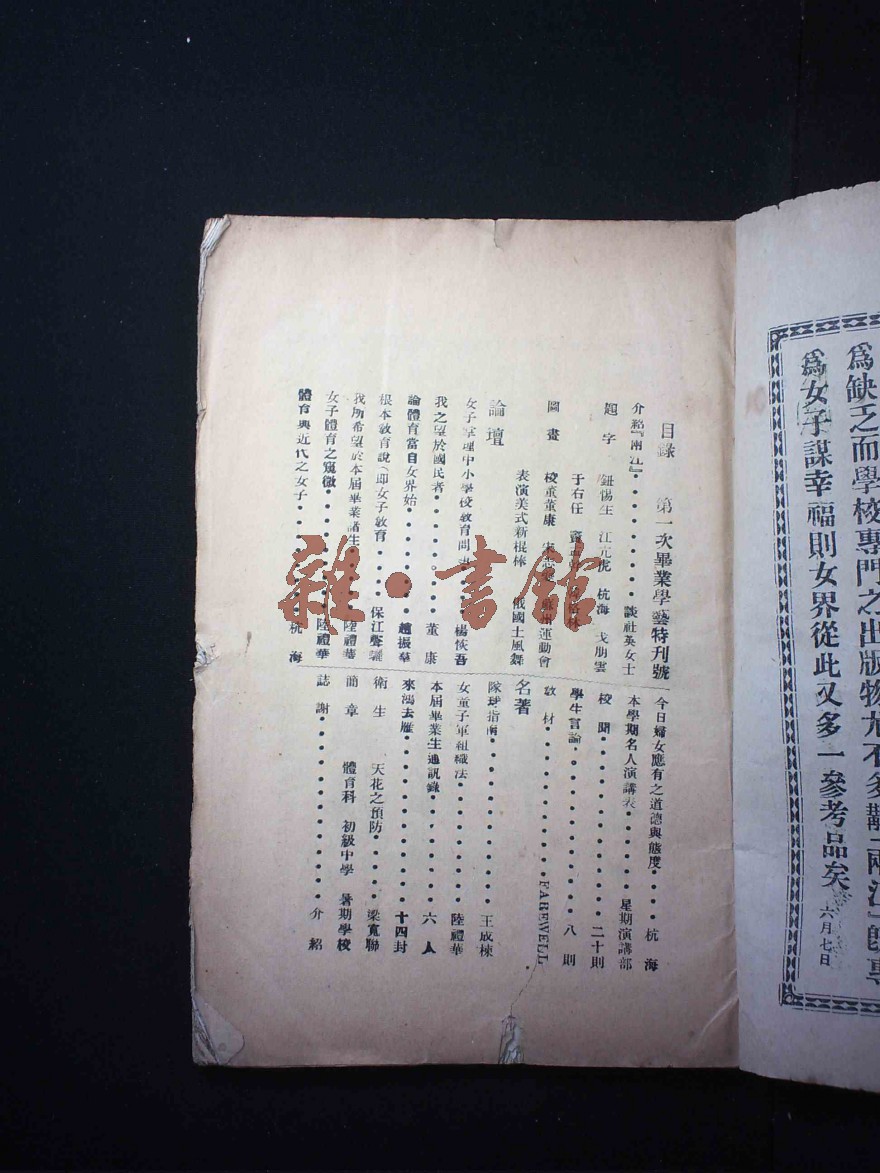 爲缺乏而學校專門之出版物尤不多
爲女子謀幸福則女界從此又多一參考品矣 六月七日
目錄 第一次畢業學藝特刊號
介紹『兩江』 談社英女士
題字 鈕惕生 江亢虎 杭海 戈朋雲
于右任
圖畫 校董董康 運動會
表演美式新棍棒 俄國土風舞
論壇
女子 理中小學校教育問 楊恢吾
我之望於國民者 董康
論體育當自女界始 趙振羣
根本教育說(即女子教育 保江聲
我所希望於本屆畢業諸生 陸禮華
女子體育之窺微 陸禮華
體育與近代之女子 杭海
今日婦女應有之道德與態度 杭海
本學期名人演講表 星期演講部
校聞 二十則
學生言論 八則
教材 FAREWELL
名著
隊球指南 王成棟
女童子軍組織法 陸禮華
本屆畢業生通訊錄 六人
來鴻去雁 十四封
衛生 天花之預防 梁寬聯
簡章 體育科 初級中學 暑期學校
誌謝 介紹
雜·書館